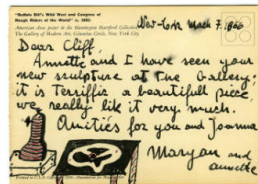 "Buffalo Bill's Wild West and Congress of
Rough Riders of the World" c. 1893.
American show poster in the Huntington Hartford Collection
The Gallery of Modern Art, Columbus Circle, New York City
New-York March 7.
Dear Cliff,
Annette and I have seen your
new sculpture at the Gallery;
it is terrific a beautifull piece
we really like it very much.
Amitiés for you and Joanna
Maryan and
annette
Printed in U.S.A.